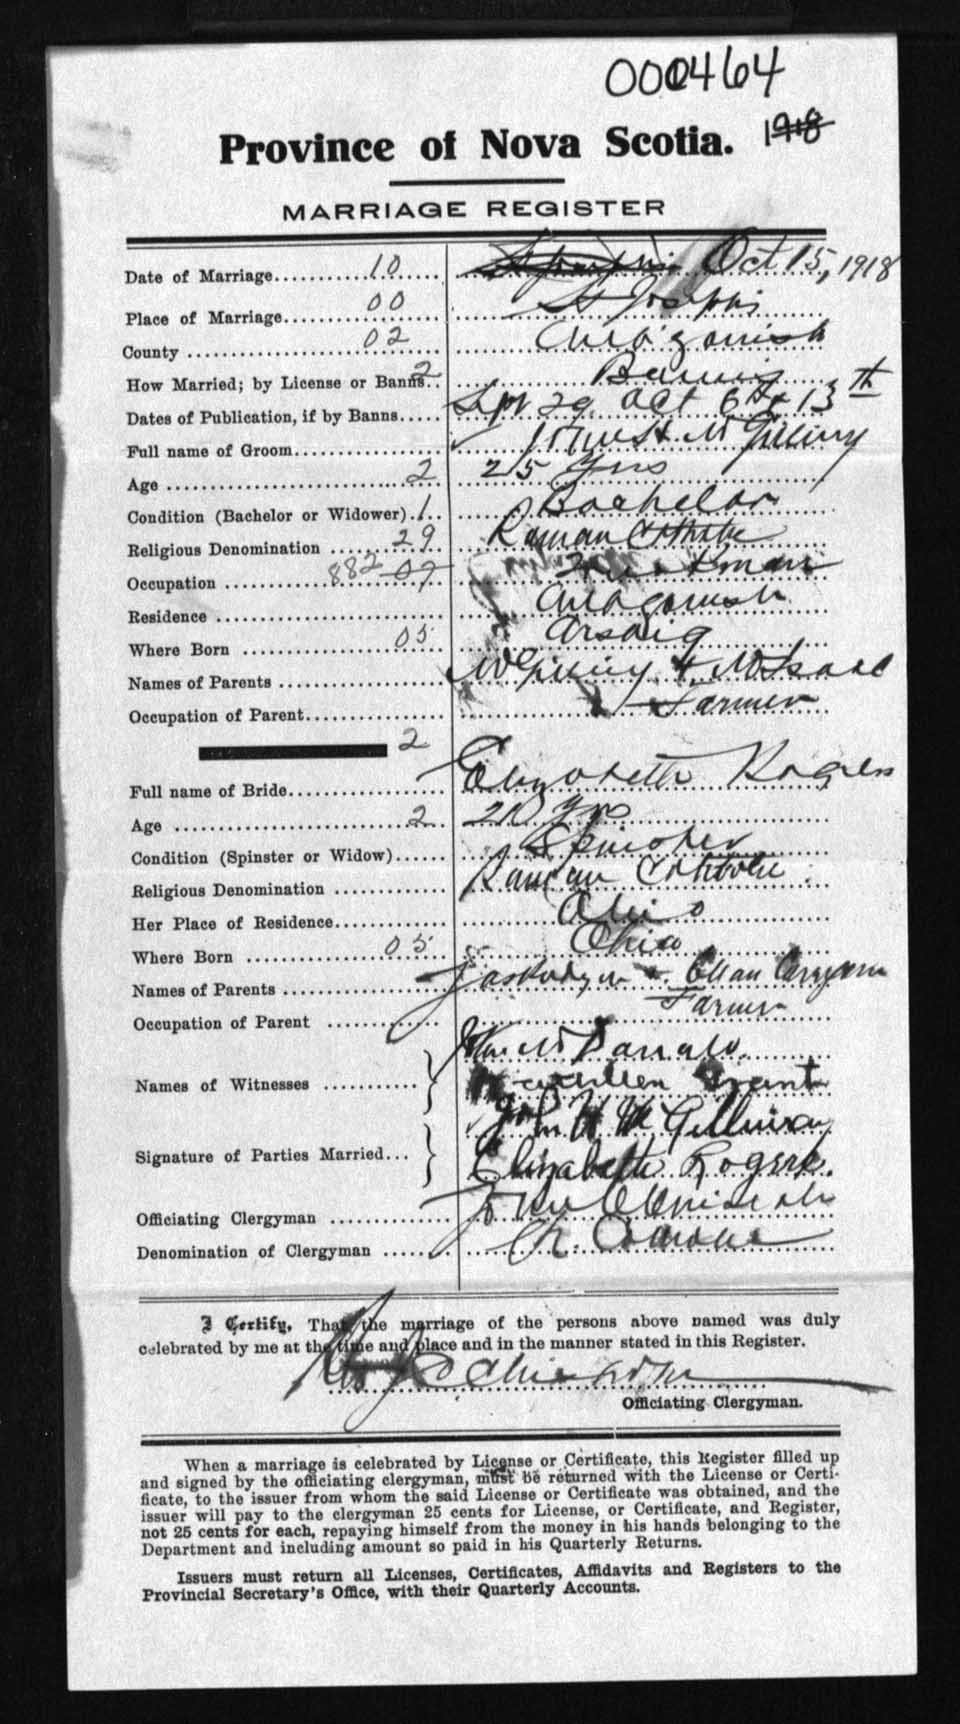 000464
Province of Nova Scotia. 1918
MARRIAGE REGISTER
Date of Marriage 10 Oct 15, 1918
Place of Marriage 00 St Josephs
County 02 Antigonish
How Married; by License or Banns 2 Banns
Dates of Publication, if by Banns Sept 29 Oct 6th & 13th
Full name of Groom
Age 2 25 Yrs
Condition (Bachelor or Widower) 1 Bachelor
Religious Denomination 29 Roman Catholic
Occupation 882 07
Residence Antigonish
Where Born 05 Arsaig
Names of Parents & McIsaac
Occupation of Parent Farmer
2
Full name of Bride Elizabeth Rogers
Age 2 Yrs
Condition (Spinster or Widow) Spinster
Religious Denomination Roman Catholic
Her Place of Residence Ohio
Where Born 05 Ohio
Names of Parents
Occupation of Parent Farmer
Names of Witnesses John
Grant
Signature of Parties Married John H McGillivray
Elizabeth Rogers.
Officiating Clergyman
Denomination of Clergyman
I Certify, That the marriage of the persons above named was duly
celebrated by me at the time and place and in the manner stated in this Register.
Officiating Clergyman.
When a marriage is celebrated by License or Certificate, this Register filled up
and signed by the officiating clergyman, must be returned with the License or Certi-
ficate, to the issuer from whom the said License or Certificate was obtained, and the
issuer will pay to the clergyman 25 cents for License, or Certificate, and Register,
not 25 cents for each, repaying himself from the money in his hands belonging to the
Department and including amount so paid in his Quarterly Returns.
Issuers must return all Licenses, Certificates, Affidavits and Registers to the
Provincial Secretary's Office, with their Quarterly Accounts.